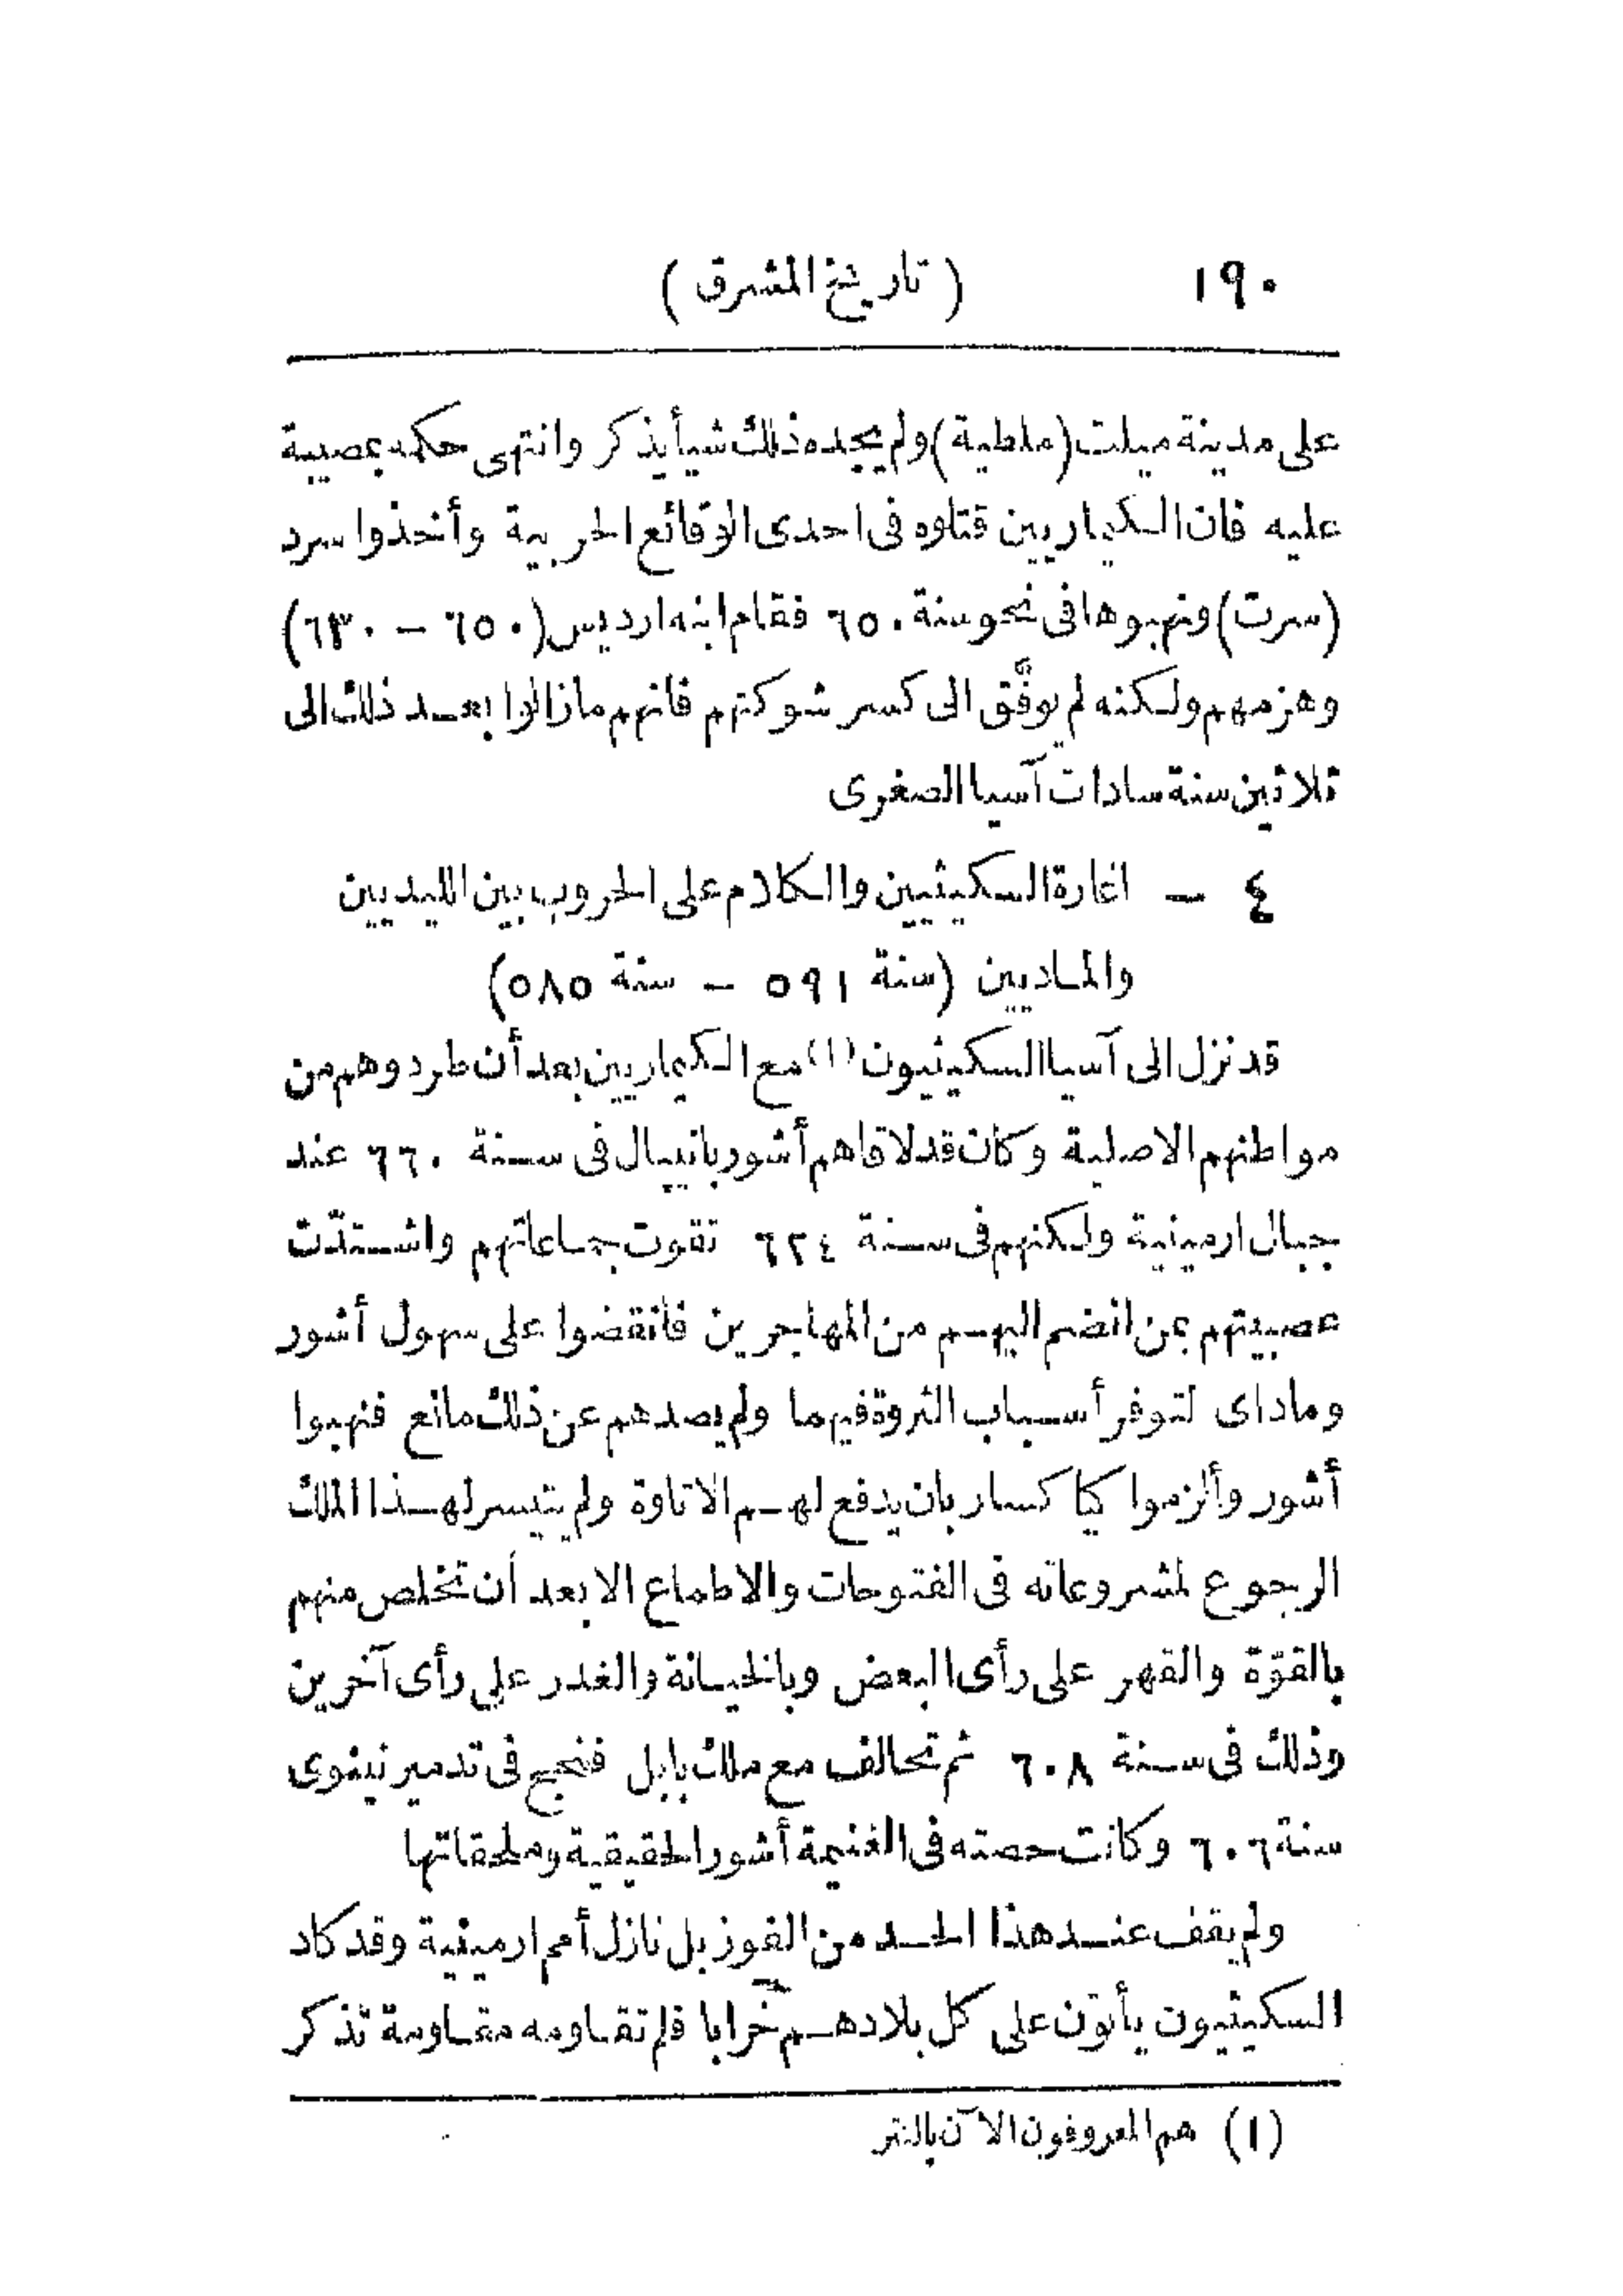 ١٩٠ ( تاريخ المشرق )
على مدينة ميلت (ملطية) ولم يجده ذلك شيأ يذكر وانتهى حكمه بمصيبة
عليه فان الكيماريين قتلوه فى احدى الوقائع الحربية وأخذوا سرد
(سرت) ونهبوها فى نحو سنة ٦٥٠ فقام ابنه ارديس (٦٥٠ – ٦٣٠)
وهزمهم ولكنه لم يوفَّق الى كسر شوكتهم فانهم مازالوا بعد ذلك الى
ثلاثين سنة سادات آسيا الصغرى
٤ – اغارة السكيثيين والكلام على الحروب بين الليديين
والماديين (سنة ٥٩١ – سنة ٥٨٥)
قد نزل الى آسيا السكيثيون (١) مع الكيماريين بعد أن طردوهم من
مواطنهم الاصلية وكان قد لاقاهم أشور بانيپال فى سنة ٦٦٠ عند
جبال ارمينية ولكنهم فى سنة ٦٢٤ تقوت جماعاتهم واشتدّت
عصبيتهم بمن انضم اليهم من المهاجرين فانقضوا على سهول أشور
وماداى لتوفر أسباب الثروة فيهما ولم يصدهم عن ذلك مانع فنهبوا
أشور وألزموا كياكسار بان يدفع لهم الاتاوة ولم يتيسر لهذا الملك
الرجوع لمشروعاته فى الفتوحات والاطماع الا بعد أن تخلص منهم
بالقوّة والقهر على رأى البعض وبالخيانة والغدر على رأى آخرين
وذلك فى سنة ٦٠٨ ثم تحالف مع ملك بابل فنجح فى تدمير نينوى
سنة ٦٠٦ وكانت حصته فى الغنيمة أشور الحقيقية وملحقاتها
ولم يقف عند هذا الحد من الفوز بل نازل أمم ارمينية وقد كاد
السكيثيون يأتون على كل بلادهم خرابا فلم تقاومه مقاومة تذكر
(١) هم المعروفون الآن بالتتر